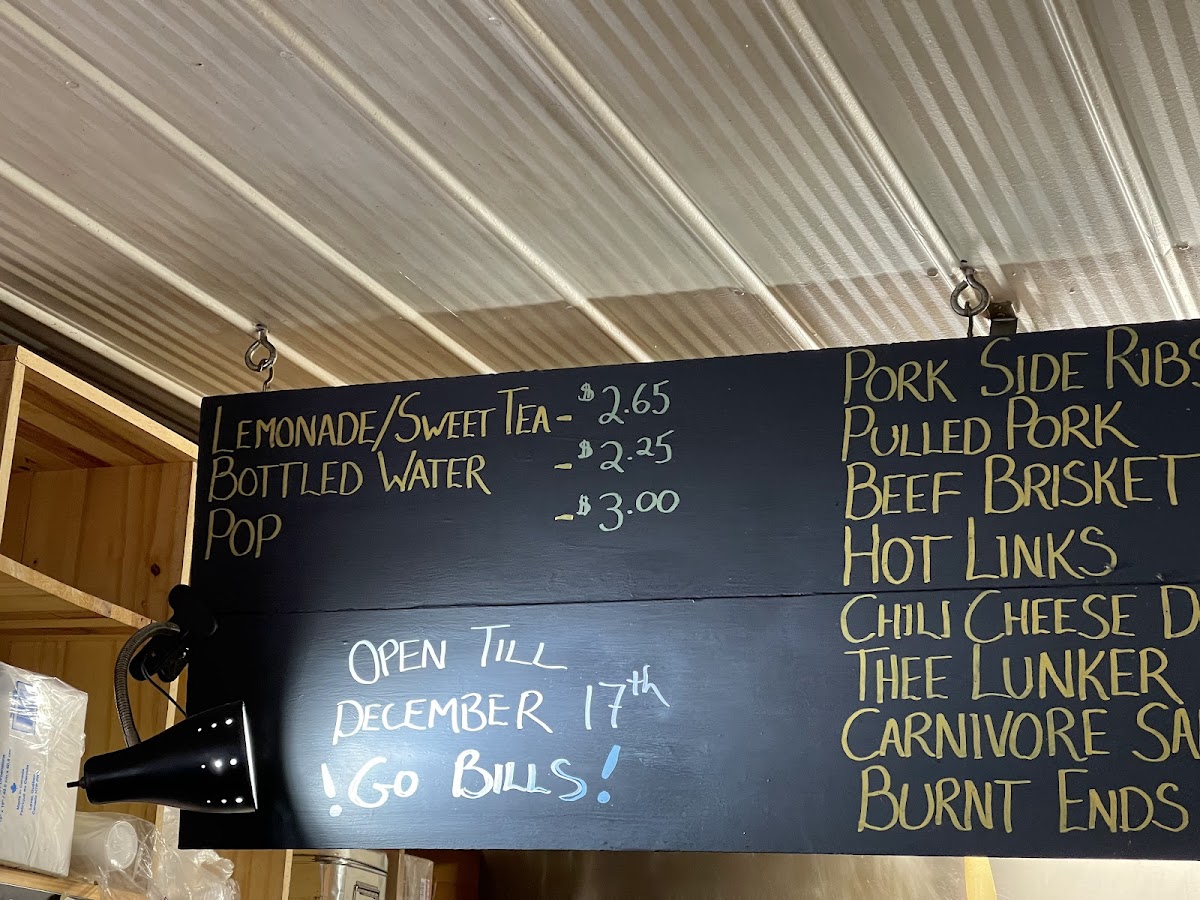 LEMONADE/SWEET TEA - $2.65
BOTTLED WATER - $2.25
POP - $3.00
OPEN TILL
DECEMBER 17th
! GO BILLS!
PORK SIDE RIBS
PULLED PORK
BEEF BRISKET
HOT LINKS
CHILI CHEESE
THEE LUNKER
CARNIVORE
BURNT ENDS